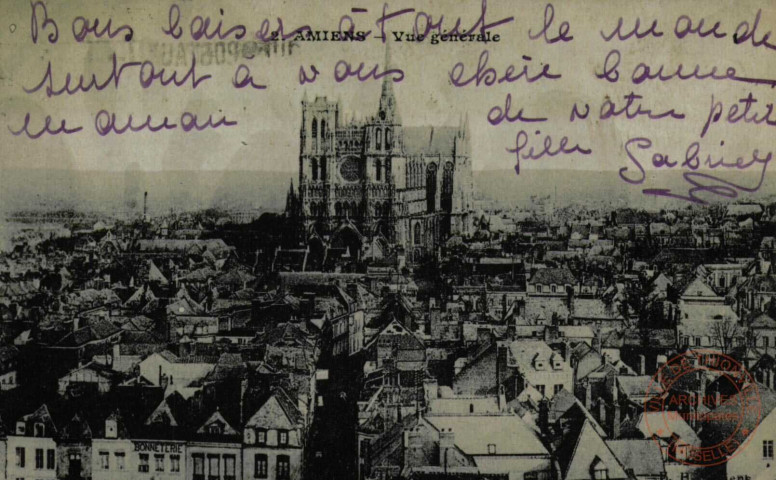 Bons baisers à tout le monde
2. AMIENS – Vue générale
surtout à vous chère bonne
maman de votre petit
fille Gabriel
BONNETERIE
ARCHIVES